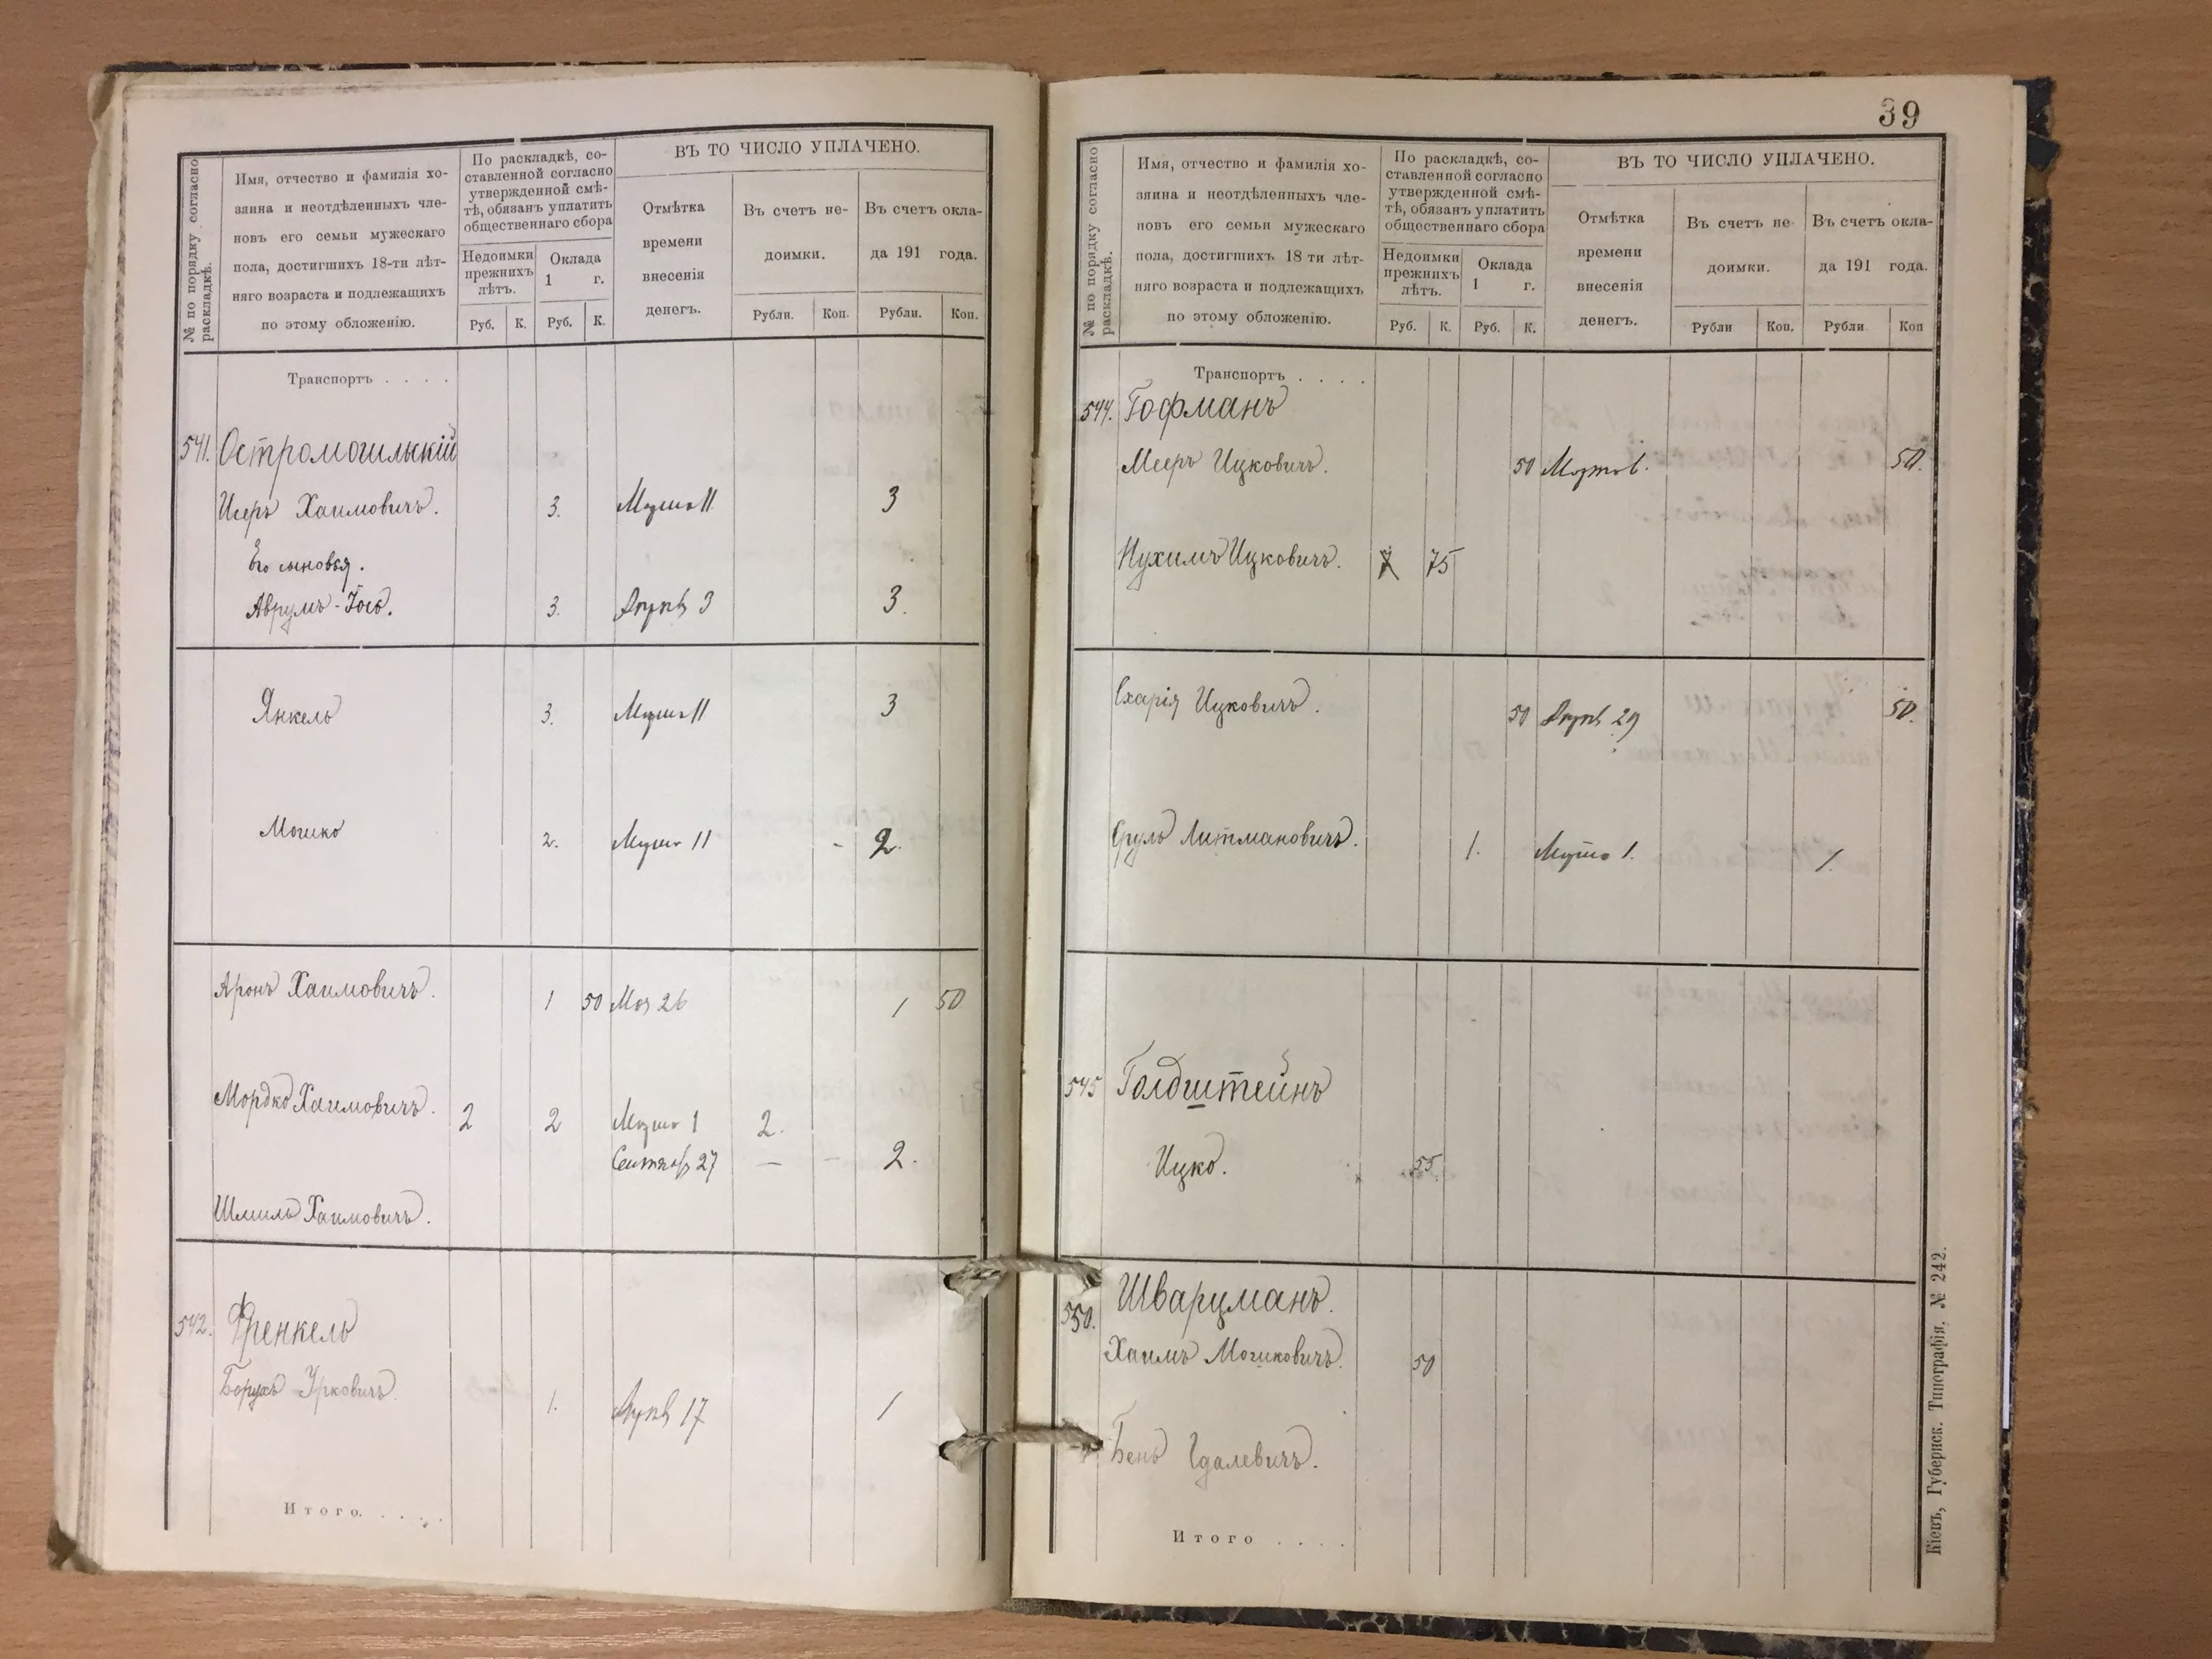 № по порядку согласно раскладкѣ.
Имя, отчество и фамилія хо-
зяина и неотдѣленныхъ чле-
новъ его семьи мужескаго
пола, достигшихъ 18-ти лѣт-
няго возраста и подлежащихъ
по этому обложенію.
По раскладкѣ, со-
ставленной согласно
утвержденной смѣ-
тѣ, обязанъ уплатить
общественнаго сбора
Недоимки
прежнихъ
лѣтъ.
Оклада
1 г.
Руб. К. Руб. К.
ВЪ ТО ЧИСЛО УПЛАЧЕНО.
Отмѣтка
времени
внесенія
денегъ.
Въ счетъ не-
доимки.
Въ счетъ окла-
да 191 года.
Рубли. Коп. Рубли. Коп.
Транспортъ . . . .
541. Остромогильскій
Исеръ Хаимовичъ. 3. Марта 11 3
Его сыновья.
Аврумъ-Іосъ. 3. Апрѣ 3 3.
Янкель 3. Марта 11 3
Мошко 2. Марта 11 - 2.
Аронъ Хаимовичъ. 1 50 Мая 26 1 50
Мордко Хаимовичъ. 2 2 Марта 1 2.
Сентябр 27 — - 2.
Шмиль Хаимовичъ.
542. Френкель
Борухъ Уркович 1. Апрѣ 17 1
Итого. . . . .
39
№ по порядку согласно раскладкѣ.
Имя, отчество и фамилія хо-
зяина и неотдѣленныхъ чле-
новъ его семьи мужескаго
пола, достигшихъ 18 ти лѣт-
няго возраста и подлежащихъ
по этому обложенію.
По раскладкѣ, со-
ставленной согласно
утвержденной смѣ-
тѣ, обязанъ уплатить
общественнаго сбора
Недоимки
прежнихъ
лѣтъ.
Оклада
1 г.
Руб. К. Руб. К.
ВЪ ТО ЧИСЛО УПЛАЧЕНО.
Отмѣтка
времени
внесенія
денегъ.
Въ счетъ не-
доимки.
Въ счетъ окла-
да 191 года.
Рубли Коп. Рубли. Коп
Транспортъ . . . .
544. Гофманъ
Мееръ Ицковичъ. 50 50.
Нухимъ Ицковичъ. 75
Схарія Ицковичъ. 50 Апрѣ 29 50.
Сруль Литмановичъ. 1. Марта 1. 1.
545 Голдштейнъ
Ицко. 55.
550. Шварцманъ.
Хаимъ Мошковичъ. 50
Бень Гдалевичъ.
Итого . . . .
Кіевъ, Губернск. Типографія. № 242.